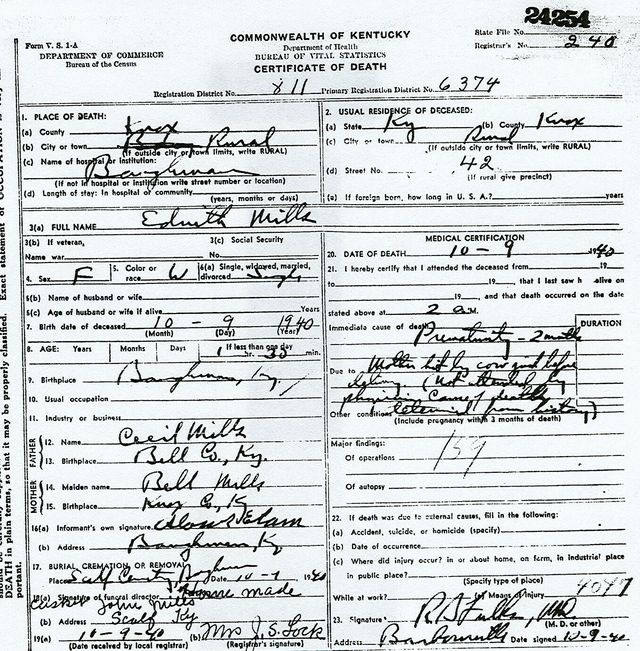 24254
COMMONWEALTH OF KENTUCKY
Form V. S. 1-A
Department of Health
State File No.
DEPARTMENT OF COMMERCE
BUREAU OF VITAL STATISTICS
Registrar's No. 240
Bureau of the Census
CERTIFICATE OF DEATH
Registration District No. 811 Primary Registration District No. 6374
1. PLACE OF DEATH:
(a) County Knox
(b) City or town Rural
(If outside city or town limits, write RURAL)
(c) Name of hospital or institution:
Baughman
(If not in hospital or institution write street number or location)
(d) Length of stay: In hospital or community
(years, months or days)
2. USUAL RESIDENCE OF DECEASED:
(a) State Ky (b) County Knox
(c) City or town Rural
(If outside city or town limits, write RURAL)
(d) Street No. 42
(If rural give precinct)
(e) If foreign born, how long in U. S. A.? years
3(a) FULL NAME Edwith Mills
3(b) If veteran,
Name war
3(c) Social Security
No.
4. Sex F
5. Color or
race W
6(a) Single, widowed, married,
divorced Single
5(b) Name of husband or wife
6(c) Age of husband or wife if alive Years
7. Birth date of deceased 10 - 9 1940
(Month) (Day) (Year)
8. AGE: Years Months Days If less than one day
1 hr. 30 min.
9. Birthplace Baughman, Ky.
10. Usual occupation
11. Industry or business
FATHER
12. Name Cecil Mills
13. Birthplace Bell Co, Ky.
MOTHER
14. Maiden name Bell Mills
15. Birthplace Knox Co, K
16(a) Informant's own signature
(b) Address Baughman, Ky
17. BURIAL, CREMATION OR REMOVAL
Place Scalf Date 1940
18(a) Signature of funeral director home made
casket John Mills
(b) Address Scalf Ky
19(a) 10-9-40 (b) Mrs J. S. Lock
(Date received by local registrar) (Registrar's signature)
MEDICAL CERTIFICATION
20. DATE OF DEATH 10 - 9 1940
21. I hereby certify that I attended the deceased from 19
to 19 , that I last saw h alive on
19 , and that death occurred on the date
stated above at 2 a.m.
DURATION
Immediate cause of death
Prematurity - 2 months
Due to Mother hit by cow just before
(Not attended by
physician. Cause of death
Other conditions determined from history)
(Include pregnancy within 3 months of death)
Major findings:
Of operations 159
Of autopsy
22. If death was due to external causes, fill in the following:
(a) Accident, suicide, or homicide (specify)
(b) Date of occurrence
(c) Where did injury occur? in or about home, on farm, in industrial place
in public place?
(Specify type of place) 4047
While at work? (e) Means of Injury
23. Signature R B Fulks, MD
(M. D. or other)
Address Barbourville Date signed 10-9-40
DEATH in plain terms, so that it may be properly classified. Exact statement of OCCUPATION
portant.